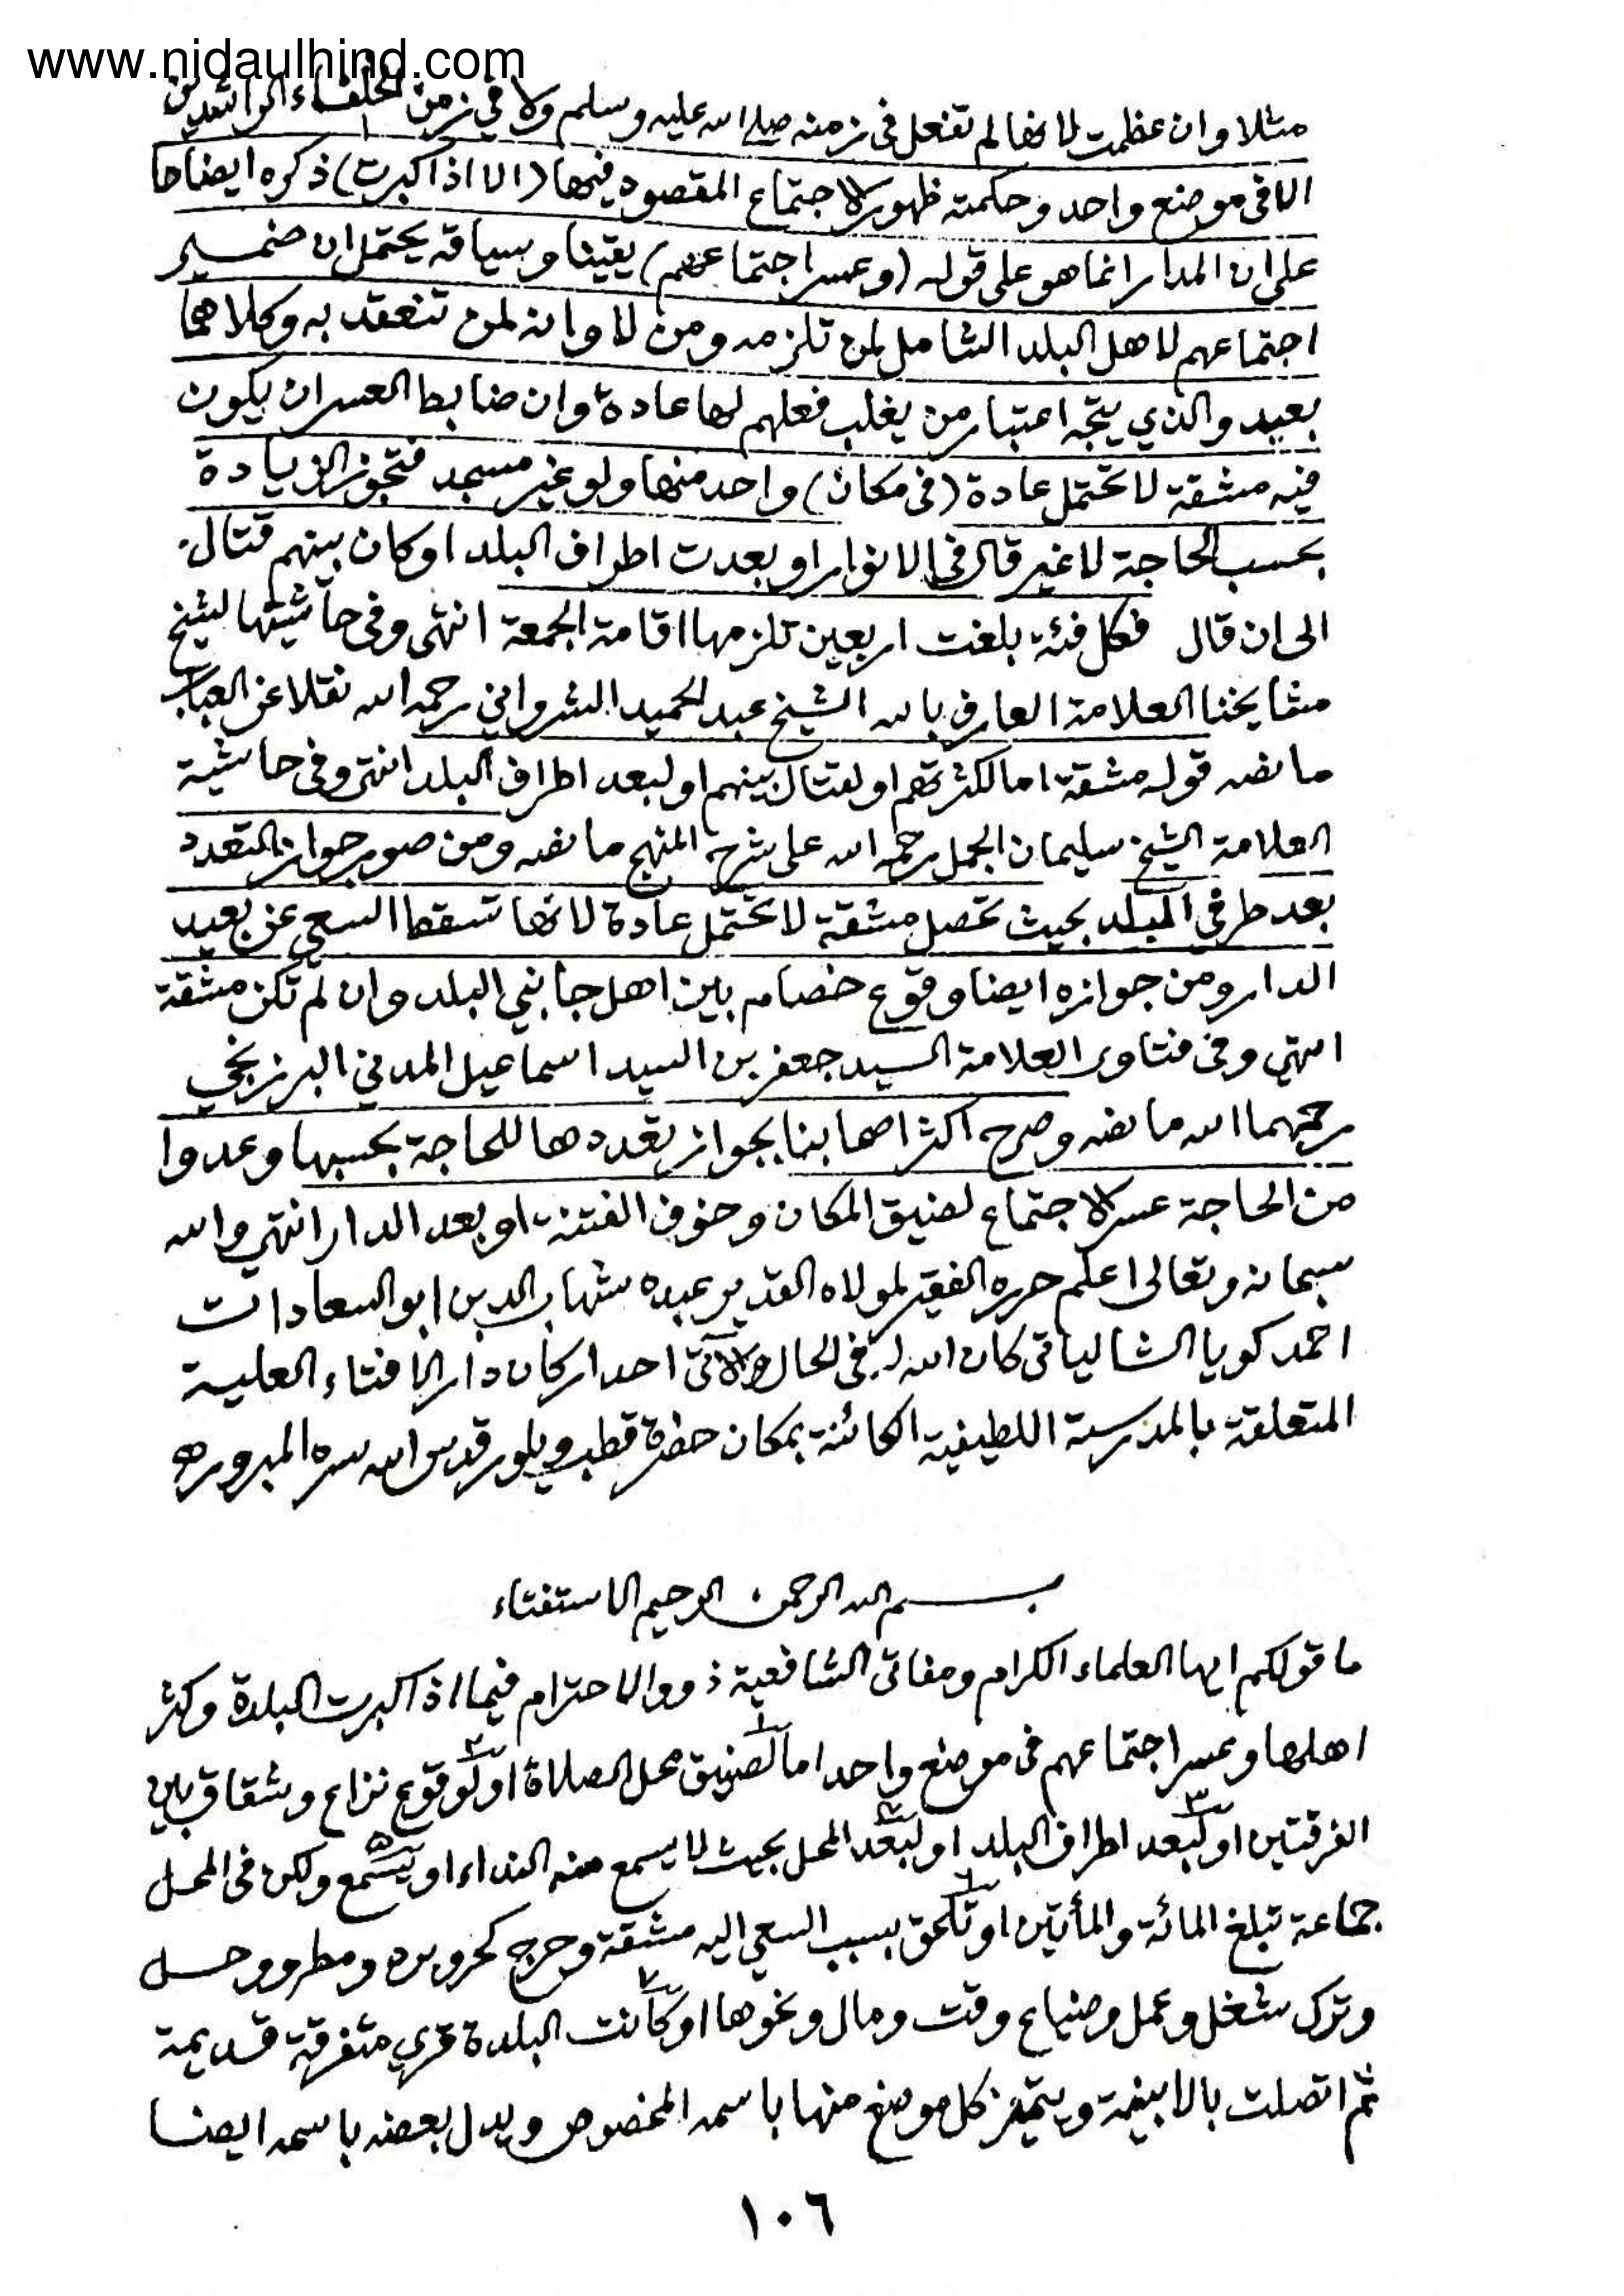 www.nidaulhind.com
مثلا وان عظمت لانها لم تفعل فى زمنه صلى الله عليه وسلم ولا في زمن الخلفاء الراشدين
الا فى موضع واحد وحكمته ظهور الاجتماع المقصود فيها (الا اذا كبرت) ذكره ايضاحا
على ان المدار انما هو على قوله (وعسر اجتماعهم) يقينا وسياقه يحتمل ان ضمير
اجتماعهم لاهل البلد الشامل لمن تلزمه ومن لا وانه لمن تنعقد به وكلاهما
بعيد والذي يتجه اعتبار من يغلب فعلهم لها عادة وان ضابط العسر ان يكون
فيه مشقة لا تحتمل عادة (فى مكان) واحد منها ولو غير مسجد فتجوز الزيادة
بحسب الحاجة لا غير قال فى الانوار او بعدت اطراف البلد او كان بينهم قتال
الى ان قال فكل فئة بلغت اربعين تلزمها اقامة الجمعة انتهى وفى حاشيتها لشيخ
مشايخنا العلامة العارف بالله الشيخ عبد الحميد الشرواني رحمه الله نقلا عن العباب
ما نصه قوله مشقة اما لكثرتهم او لقتال بينهم او لبعد اطراف البلد انتهى وفى حاشية
العلامة الشيخ سليمان الجمل رحمه الله على شرح المنهج ما نصه ومن صور جواز التعدد
بعد طرفي البلد بحيث تحصل مشقة لا تحتمل عادة لانها تسقط السعي عن بعيد
الدار ومن جوازه ايضا وقوع خصام بين اهل جانبي البلد وان لم تكن مشقة
انتهي وفى فتاوى العلامة السيد جعفر بن السيد اسماعيل المدني البرزنجي
رحمهما الله ما نصه وصرح اكثر اصحابنا بجواز تعددها للحاجة بحسبها وعدوا
من الحاجة عسر الاجتماع لضيق المكان وخوف الفتنة او بعد الدار انتهي والله
سبحانه وتعالى اعلم حرره الفقير لمولاه القدير عبده شهاب الدين ابو السعادات
احمد كويا الشالياتى كان الله له فى الحال والآتى احد اركان دار الافتاء العلية
المتعلقة بالمدرسة اللطيفية الكائنة بمكان حضرة قطب ويلور قدس الله سره المبرور ه
بسم الله الرحمن الرحيم الاستفتاء
ما قولكم ايها العلماء الكرام ومفاتى الشافعية ذووا الاحترام فيما اذا كبرت البلدة وكثر
اهلها وعسر اجتماعهم فى موضع واحد اما لضيق محل الصلاة او لوقوع نزاع وشقاق بين
الفرقتين او لبعد اطراف البلد او لبعد المحل بحيث لا يسمع منه النداء او يسمع ولكن فى المحل
جماعة تبلغ المائة والمأتين او تلحق بسبب السعي اليه مشقة وحرج كحر وبرد ومطر ووحل
وترك شغل وعمل وضياع وقت ومال ونحوها او كانت البلدة قري متفرقة قديمة
ثم اتصلت بالابنية ويتميز كل موضع منها باسمه المخصوص ويدل بعضه باسمه ايضا
١٠٦